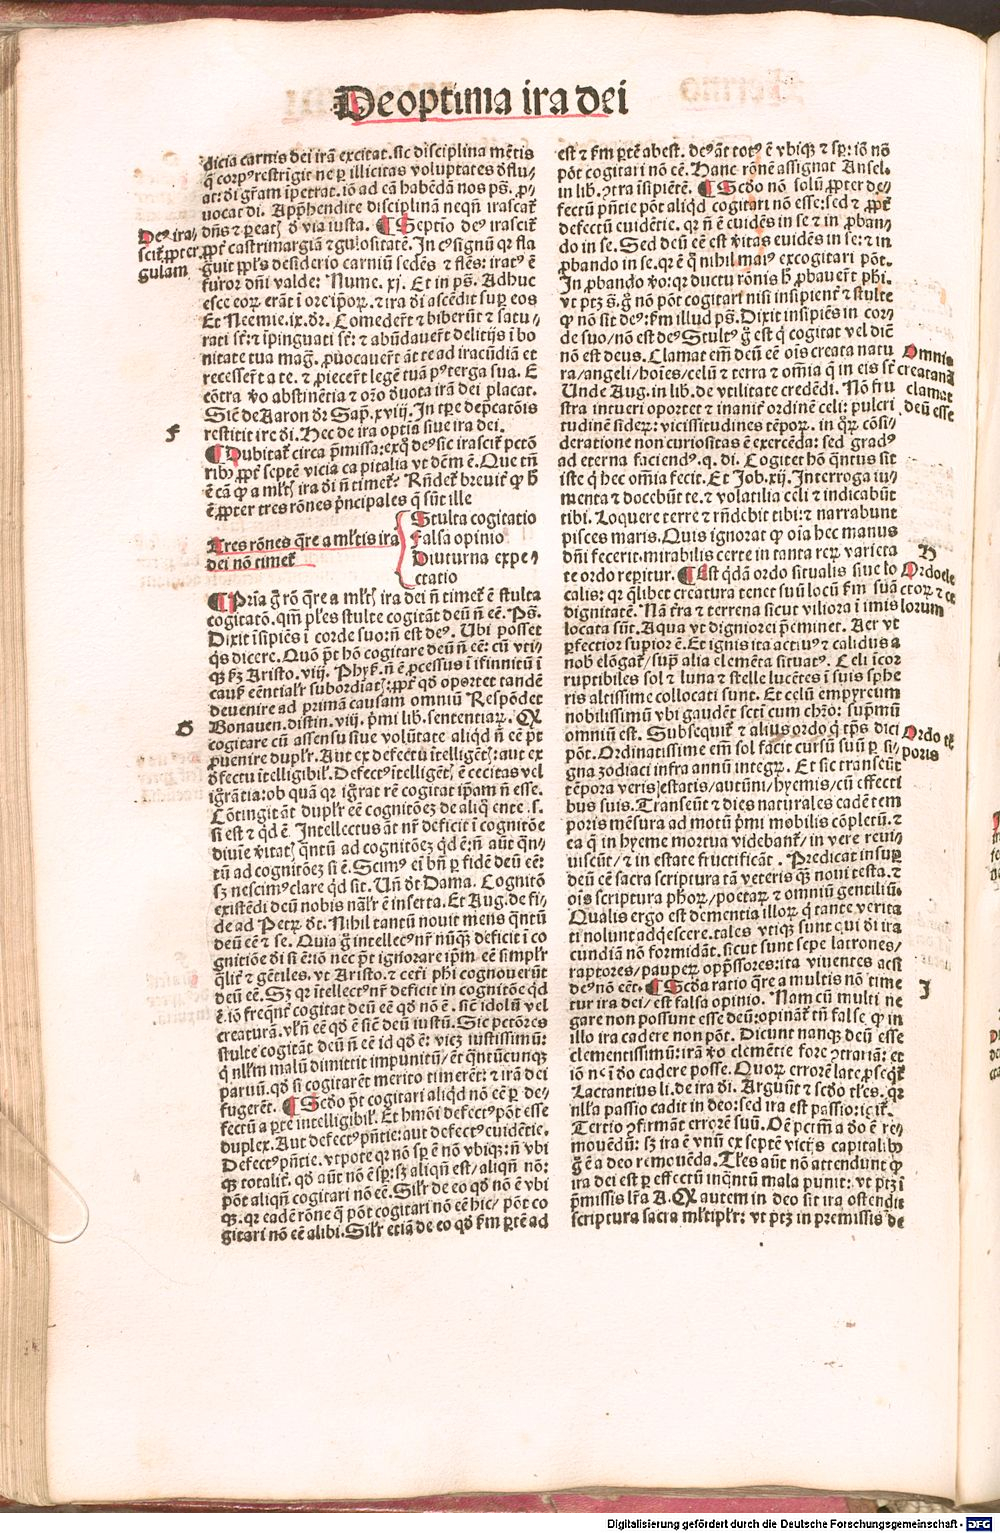 De optima ira dei
dicia carnis dei irã excitat. sic disciplina mẽtis
q̃ corpus restrigit ne ꝑ illicitas voluptates dr̃flu/
at: dĩ grãm ĩpetrat. iõ ad eã habẽdã nos ps̃. ꝓ/
uocat dĩ. App̃hendite disciplinã neqñ irascat̃
dñs ⁊ ꝑeatis d̃ via iusta. ¶ Septĩo deꝰ irascit̃
ꝓpt̃ castrimargiã ⁊ gulositatẽ. In cꝰ signũ qꝛ fla
Deꝰ ira/
scit̃ ꝓpter
gulam
guit ppĺs desiderio carniũ sedẽs ⁊ flẽs: iratꝰ ẽ
furor dñi valde: Nume. xj. Et in ps̃. Adhuc
esce eoꝝ erãt ĩ ore ip̃oꝝ. ⁊ ira dĩ ascẽdit suꝑ eos
Et Neemie. ix. dr̃. Comeder̃t ⁊ biberũt ⁊ satu/
rati st̃: ⁊ ĩpinguati st̃: ⁊ abũdauer̃t delitijs ĩ bo
nitate tua mag̃. ꝓuocauer̃t ãt te ad iracũdiã et
recesser̃t a te. ⁊ ꝓiecer̃t legẽ tuã pꝰ terga sua. E
cõtra ꝟo abstinẽtia ⁊ or̃o d̃uota irã dei placat.
Sic̃ de Aaron dr̃ Sap̃. xviij. In tp̃e dep̃catõis
restitit ire dĩ. Hec de ira optĩa siue ira dei.
F
¶ Dubitat̃ circa p̃missa: ex q̃ deꝰ sic irascit̃ pctõ
ribꝰ ꝓpt̃ septẽ vicia capitalia vt dc̃m ẽ. Que tñ
ẽ cã ꝙ a ml̃tis ira dĩ nõ timet̃: Rñdet̃ breuit̃ ꝙ h̃
ẽ ꝓpter tres rõnes p̃ncipales q̃ sũt ille
Tres rõnes q̃re a ml̃tis ira
dei nõ timet̃
Stulta cogitatio
Falsa opinio
Diuturna expe/
ctatio
¶ Prĩa g̃ rõ q̃re a ml̃tis ira dei ñ timet̃ ẽ stulta
cogitatõ. qm̃ pl̃es stulte cogitãt deũ ñ eẽ. Ps̃.
Dixit ĩsipiẽs ĩ corde suo: ñ est deꝰ. Ubi posset
q̃s dicere. Quõ p̃t hõ cogitare deũ ñ eẽ: cũ vti/
qꝫ ẜm Aristo. viij. Phyẜ. ñ ẽ ꝓcessus ĩ ĩfinitũ ĩ
causẽ eẽntialr̃ subordĩatis: ꝓpt̃ qd̃ oportet tandẽ
deuenire ad primã causam omniũ Respõdet
G
Bonauen. distin. viij. p̃mi lib. sententiaꝝ. Qꝙ
cogitare cũ assensu siue volũtate aliqd ñ eẽ p̃t
ꝓuenire duplr̃. Aut ex defectu ĩtelligẽtis: aut ex
d̃fectu ĩtelligibil̃. Defectꝰ ĩtelligẽtis ẽ cecitas vel
ig̃rãtia: ob quã qꝛ ig̃rat rẽ cogitat ip̃am ñ esse.
Cõtingit ãt duplr̃ eẽ cognitõez de aliq̃ ente. s.
si est ⁊ qd ẽ. Intellectus ãt nr̃ deficit ĩ cognitõe
diuĩe ꝟitatis q̃ntũ ad cognitõez qd ẽ: ñ aũt q̃n/
tũ ad cognitõez si ẽ. Scimꝰ eĩ bñ ꝑ fidẽ deũ eẽ:
sꝫ nescimꝰ clare qd sit. Uñ dt̃ Dama. Cognitõ
existẽdi deũ nobis nãlr̃ ẽ inserta. Et Aug. de fi/
de ad Petꝝ dt̃. Nihil tantũ nouit mens q̃ntũ
deũ eẽ ⁊ se. Quia g̃ intellecꝰ nr̃ nũq̃ꝫ deficit ĩ co
gnitiõe dĩ si ẽ: iõ nec p̃t ignorare ip̃m eẽ simplr̃
q̃lit̃ ⁊ gẽtiles. vt Aristo. ⁊ cet̃i phi cognouerũt
deũ eẽ. Sꝫ qꝛ ĩtellectꝰ nr̃ deficit in cognitõe qd
ẽ. iõ freq̃nt̃ cogitat deũ eẽ qd nõ ẽ. sic̃ idolũ vel
creaturã. vl̃ñ eẽ qd ẽ sic̃ deũ iustũ. Sic pctõres
stulte cogitãt deũ ñ eẽ id qd ẽ: vicꝫ iustissimũ:
q̃ nllm̃ malũ dimittit impunitũ/ ẽt q̃ntũcunqꝫ
paruũ. qd si cogitarẽt merito timerẽt: ⁊ irã dei
fugerẽt. ¶ Scd̃o p̃t cogitari aliqd nõ eẽ ꝑ de/
fectũ a ꝑte intelligibil̃. Et hmõi defectꝰ põt esse
duplex. Aut defectꝰ p̃ntie: aut defectꝰ euidẽtie.
Defectꝰ p̃ntie. vtpote qꝛ nõ sꝑ ẽ nõ vbiqꝫ: ñ vbi
qꝫ totalit̃. qd aũt nõ ẽ sꝑ: sꝫ aliqñ est/ aliqñ nõ:
põt aliqñ cogitari nõ eẽ. Silr̃ de eo qd nõ ẽ vbi
qꝫ. qꝛ eadẽ rõne q̃ põt cogitari nõ eẽ hic/ põt co
gitari nõ eẽ alibi. Silr̃ etiã de eo qd ẜm ꝑtẽ ad
est ⁊ ẜm ꝑtẽ abest. deꝰ ãt totꝰ ẽ vbiqꝫ ⁊ sꝑ: iõ nõ
põt cogitari nõ eẽ. Hanc rõnẽ assignat Ansel.
in lib. ꝯtra ĩsipiẽtẽ. ¶ Scd̃o nõ solũ ꝓpter de/
fectũ p̃ntie põt aliqd cogitari nõ esse: sed ⁊ ꝓpt̃
defectũ euidẽtie. qꝛ ñ ẽ euidẽs in se ⁊ in ꝓban/
do in se. Sed deũ eẽ est ꝟitas euidẽs in se: ⁊ in
ꝓbando in se. qꝛ ẽ q̃ nihil maiꝰ excogitari põt.
In ꝓbando ꝟo: qꝛ ductu rõnis h̃ ꝓbauer̃t phi.
vt ptꝫ s̃. g̃ nõ põt cogitari nisi insipient̃ ⁊ stulte
ꝙ nõ sit deꝰ: ẜm illud ps̃. Dixit insipiẽs in cor/
de suo/ nõ est deꝰ Stultꝰ g̃ est q̃ cogitat vel diẽ
nõ est deus. Clamat em̃ deũ eẽ oĩs creata natu
Omnis
creatanã
clamat
deũ esse
ra/ angeli/ hoĩes/ celũ ⁊ terra ⁊ om̃ia q̃ in eis st̃
Unde Aug. in lib. de vtilitate credẽdi. Nõ fru
stra intueri oportet ⁊ inanit̃ ordinẽ celi: pulcri
tudinẽ sideꝝ: vicissitudines tẽpoꝝ. in q̃ꝝ cõsi/
deratione non curiositas ẽ exercẽda: sed gradꝰ
ad eterna faciendꝰ. q. di. Cogitet hõ q̃ntus sit
iste q̃ hec om̃ia fecit. Et Job. xij. Interroga iu/
menta ⁊ docebũt te. ⁊ volatilia celi ⁊ indicabũt
tibi. Loquere terre ⁊ rñdebit tibi: ⁊ narrabunt
pisces maris. Quis ignorat ꝙ oĩa hec manus
dñi fecerit. mirabilis certe in tanta reꝝ varieta
H
te ordo reꝑitur. ¶ Est q̃dã ordo situalis siue lo
Ordo ele
ctoꝝ ⁊ ce
lorum
calis: qꝛ q̃libet creatura tenet suũ locũ ẜm suã
dignitatẽ. Nã t̃ra ⁊ terrena sicut viliora ĩ imis
locata sũt. Aqua vt dignior ei p̃eminet. Aer vt
ꝑfectior supior ẽ. Et ignis ita actiuꝰ ⁊ calidus a
nob̃ elõgat̃/ sup̃ alia elemẽta situatꝰ. Celi ĩcor
ruptibiles sol ⁊ luna ⁊ stelle lucẽtes ĩ suis sphe
ris altissime collocati sunt. Et celũ empyreum
nobilissimũ vbi gaudẽt scti cum chr̃o: sup̃mũ
omniũ est. Subsequit̃ ⁊ alius ordo q̃ tp̃s dici
Ordo tẽ
poris
põt. Ordinatissime em̃ sol facit cursũ suũ ꝑ si/
gna zodiaci infra annũ integꝝ. Et sic transeũt
tẽpora veris/ estatis/ autũni/ hyemis/ cũ effecti
bus suis. Transeũt ⁊ dies naturales eadẽ tem
poris mẽsura ad motũ p̃mi mobilis cõpletũ. ⁊
ea q̃ in hyeme mortua videbant̃/ in vere reui/
uiscũt/ ⁊ in estate fructificãt. Predicat insuꝑ
deũ eẽ sacra scriptura tã veteris qꝫ noui testa. ⁊
oĩs scriptura phoꝝ/ poetaꝝ ⁊ omniũ gentiliũ.
Qualis ergo est dementia illoꝝ q̃ tante verita
ti nolunt adq̃escere. tales vtiqꝫ sunt qui dĩ ira
cundiã non formidãt. sicut sunt sepe latrones/
raptores/ pauperũ opp̃ssores: ita viuentes acsi
deꝰ nõ eẽt. ¶ Scd̃a ratio q̃re a multis nõ time
J
tur ira dei/ est falsa opinio. Nam cũ multi ne
gare non possunt esse deũ: opinãt̃ tñ false ꝙ in
illo ira cadere non põt. Dicunt nanqꝫ deũ esse
clementissimũ: irã ꝟo clemẽtie fore ꝯtrariã: et
iõ nec ĩ do cadere posse. Quoꝝ errorẽ late ꝓseqt̃
Lactantius li. de ira dĩ. Arguũt ⁊ scd̃o tl̃es. qꝛ
nll̃a passio cadit in deo: sed ira est passio: igit̃.
Tertio ꝯfirmãt errorẽ suũ. Oẽ pctm̃ a do ẽ re/
mouẽdũ: sꝫ ira ẽ vnũ ex septẽ victijs capitalibꝰ
g̃ ẽ a deo remouẽda. Tl̃es aũt nõ attendunt ꝙ
ira dei est ꝑ effectũ inq̃ntũ mala punit: vt ptꝫ ĩ
p̃missis lr̃a A. Qꝙ autem in deo sit ira ostendit
scriptura sacra ml̃tiplr̃: vt ptꝫ in premissis de
Digitalisierung gefördert durch die Deutsche Forschungsgemeinschaft - DFG